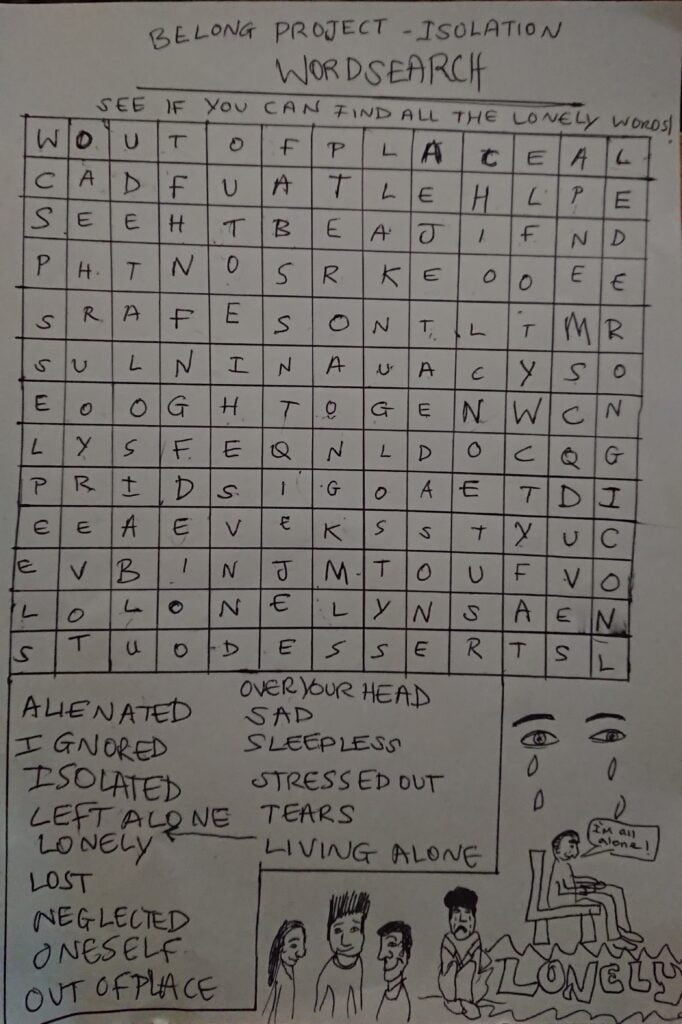 BELONG PROJECT - ISOLATION
WORDSEARCH
SEE IF YOU CAN FIND ALL THE LONELY WORDS!
W O U T O F P L A C E A L
C A D F U A T L E H L P E
S E E H T B E A J I F N D
P H T N O S R K E O O E E
S R A F E S O N T L T M R
S U L N I N A U A C Y S O
E O O G H T O G E N W C N
L Y S F E Q N L D O C Q G
P R I D S I G O A E T D I
E E A E V E K S S T Y U C
E V B I N J M T O U F V O
L O L O N E L Y N S A E N
S T U O D E S S E R T S L
ALIENATED
IGNORED
ISOLATED
LEFT ALONE
LONELY
LOST
NEGLECTED
ONESELF
OUT OF PLACE
OVER YOUR HEAD
SAD
SLEEPLESS
STRESSED OUT
TEARS
LIVING ALONE
I'm all
alone!
LONELY